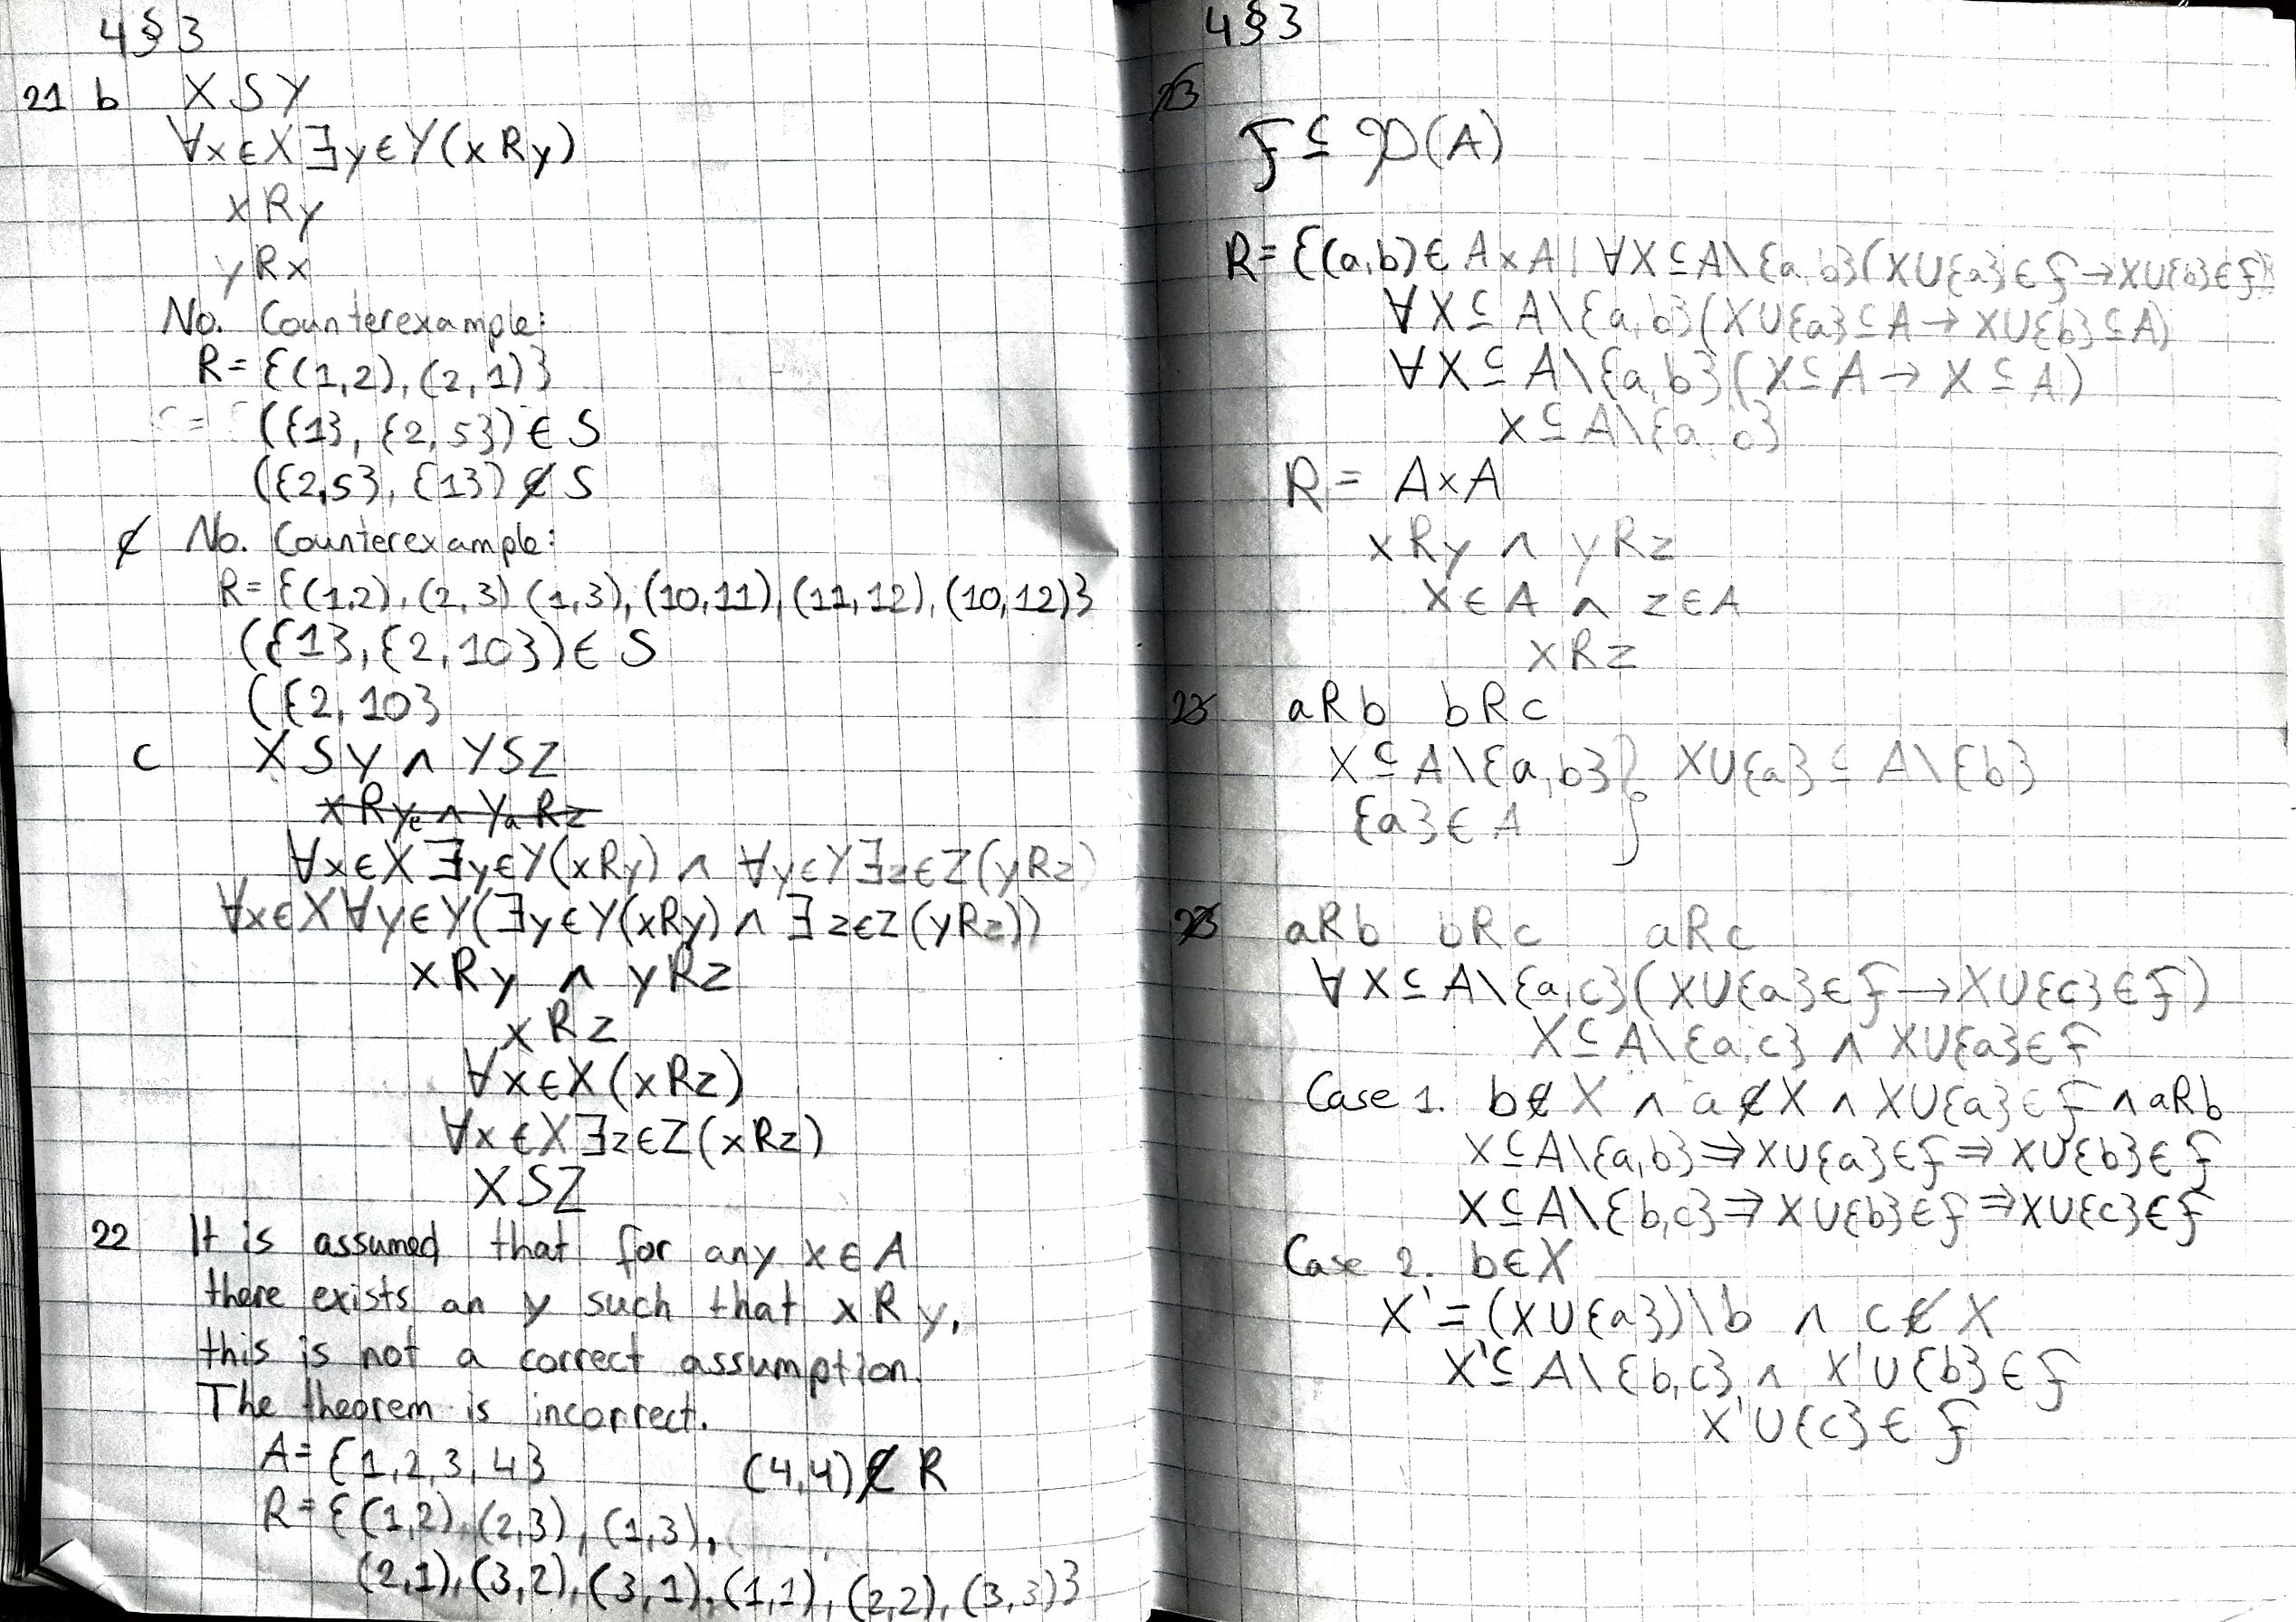 4§3
21 b X S Y
∀x∈X∃y∈Y(xRy)
xRy
yRx
No. Counterexample:
R={(1,2),(2,1)}
({1},{2,5})∈S
({2,5},{1})∉S
¢ No. Counterexample:
R={(1,2),(2,3)(1,3),(10,11),(11,12),(10,12)}
({1},{2,10})∈S
({2,10}
c XSY∧YSZ
xRyₑ∧yₐRz
∀x∈X∃y∈Y(xRy)∧∀y∈Y∃z∈Z(yRz)
∀x∈X∀y∈Y(∃y∈Y(xRy)∧∃z∈Z(yRz))
xRy∧yRz
xRz
∀x∈X(xRz)
∀x∈X∃z∈Z(xRz)
XSZ
22 It is assumed that for any x∈A
there exists an y such that xRy,
this is not a correct assumption.
The theorem is incorrect.
A={1,2,3,4} (4,4)∉R
R={(1,2),(2,3),(1,3),
(2,1),(3,2),(3,1),(1,1),(2,2),(3,3)}
4§3
23
F⊆P(A)
R={(a,b)∈A×A|∀X⊆A\{a,b}(X∪{a}∈F→X∪{b}∈F)}
∀X⊆A\{a,b}(X∪{a}⊆A→X∪{b}⊆A)
∀X⊆A\{a,b}(X⊆A→X⊆A)
X⊆A\{a,b}
R=A×A
xRy∧yRz
x∈A∧z∈A
xRz
23 aRb bRc
X⊆A\{a,b}} X∪{a}⊆A\{b}
{a}∈A
23 aRb bRc aRc
∀X⊆A\{a,c}(X∪{a}∈F→X∪{c}∈F)
X⊆A\{a,c}∧X∪{a}∈F
Case 1. b∉X∧a∉X∧X∪{a}∈F∧aRb
X⊆A\{a,b}⇒X∪{a}∈F⇒X∪{b}∈F
X⊆A\{b,c}⇒X∪{b}∈F⇒X∪{c}∈F
Case 2. b∈X
X'=(X∪{a})\b∧c∉X
X'⊆A\{b,c}∧X'∪{b}∈F
X'∪{c}∈F